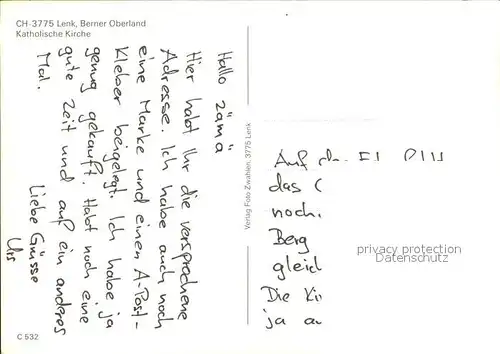 CH-3775 Lenk, Berner Oberland
Katholische Kirche
Hallo zämä
Hier habt Ihr die versprochene
Adresse. Ich habe auch noch
eine Marke und einen A-Post-
Kleber beigelegt. Ich habe ja
genug gekauft. Habt noch eine
gute Zeit und auf ein anderes
Mal.
Liebe Grüsse
Urs
Verlag Foto Zwahlen, 3775 Lenk
Auf
das
noch.
Berg
gleich
Die
ja
privacy protection
Datenschutz
C 532